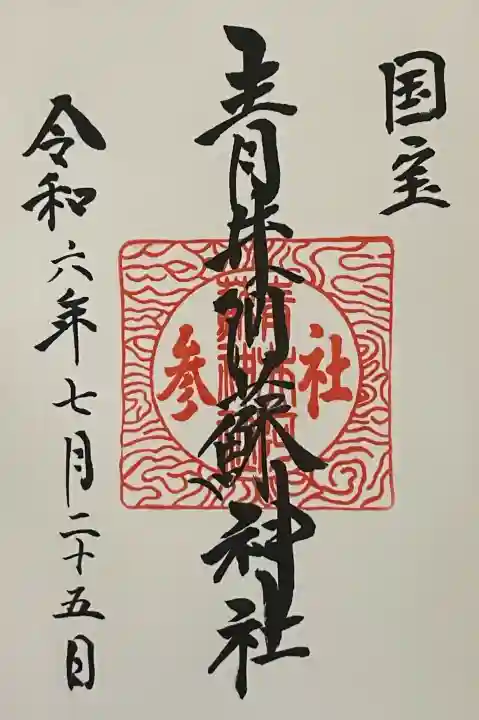 国宝
青井阿蘇神社
社参
令和六年七月二十五日